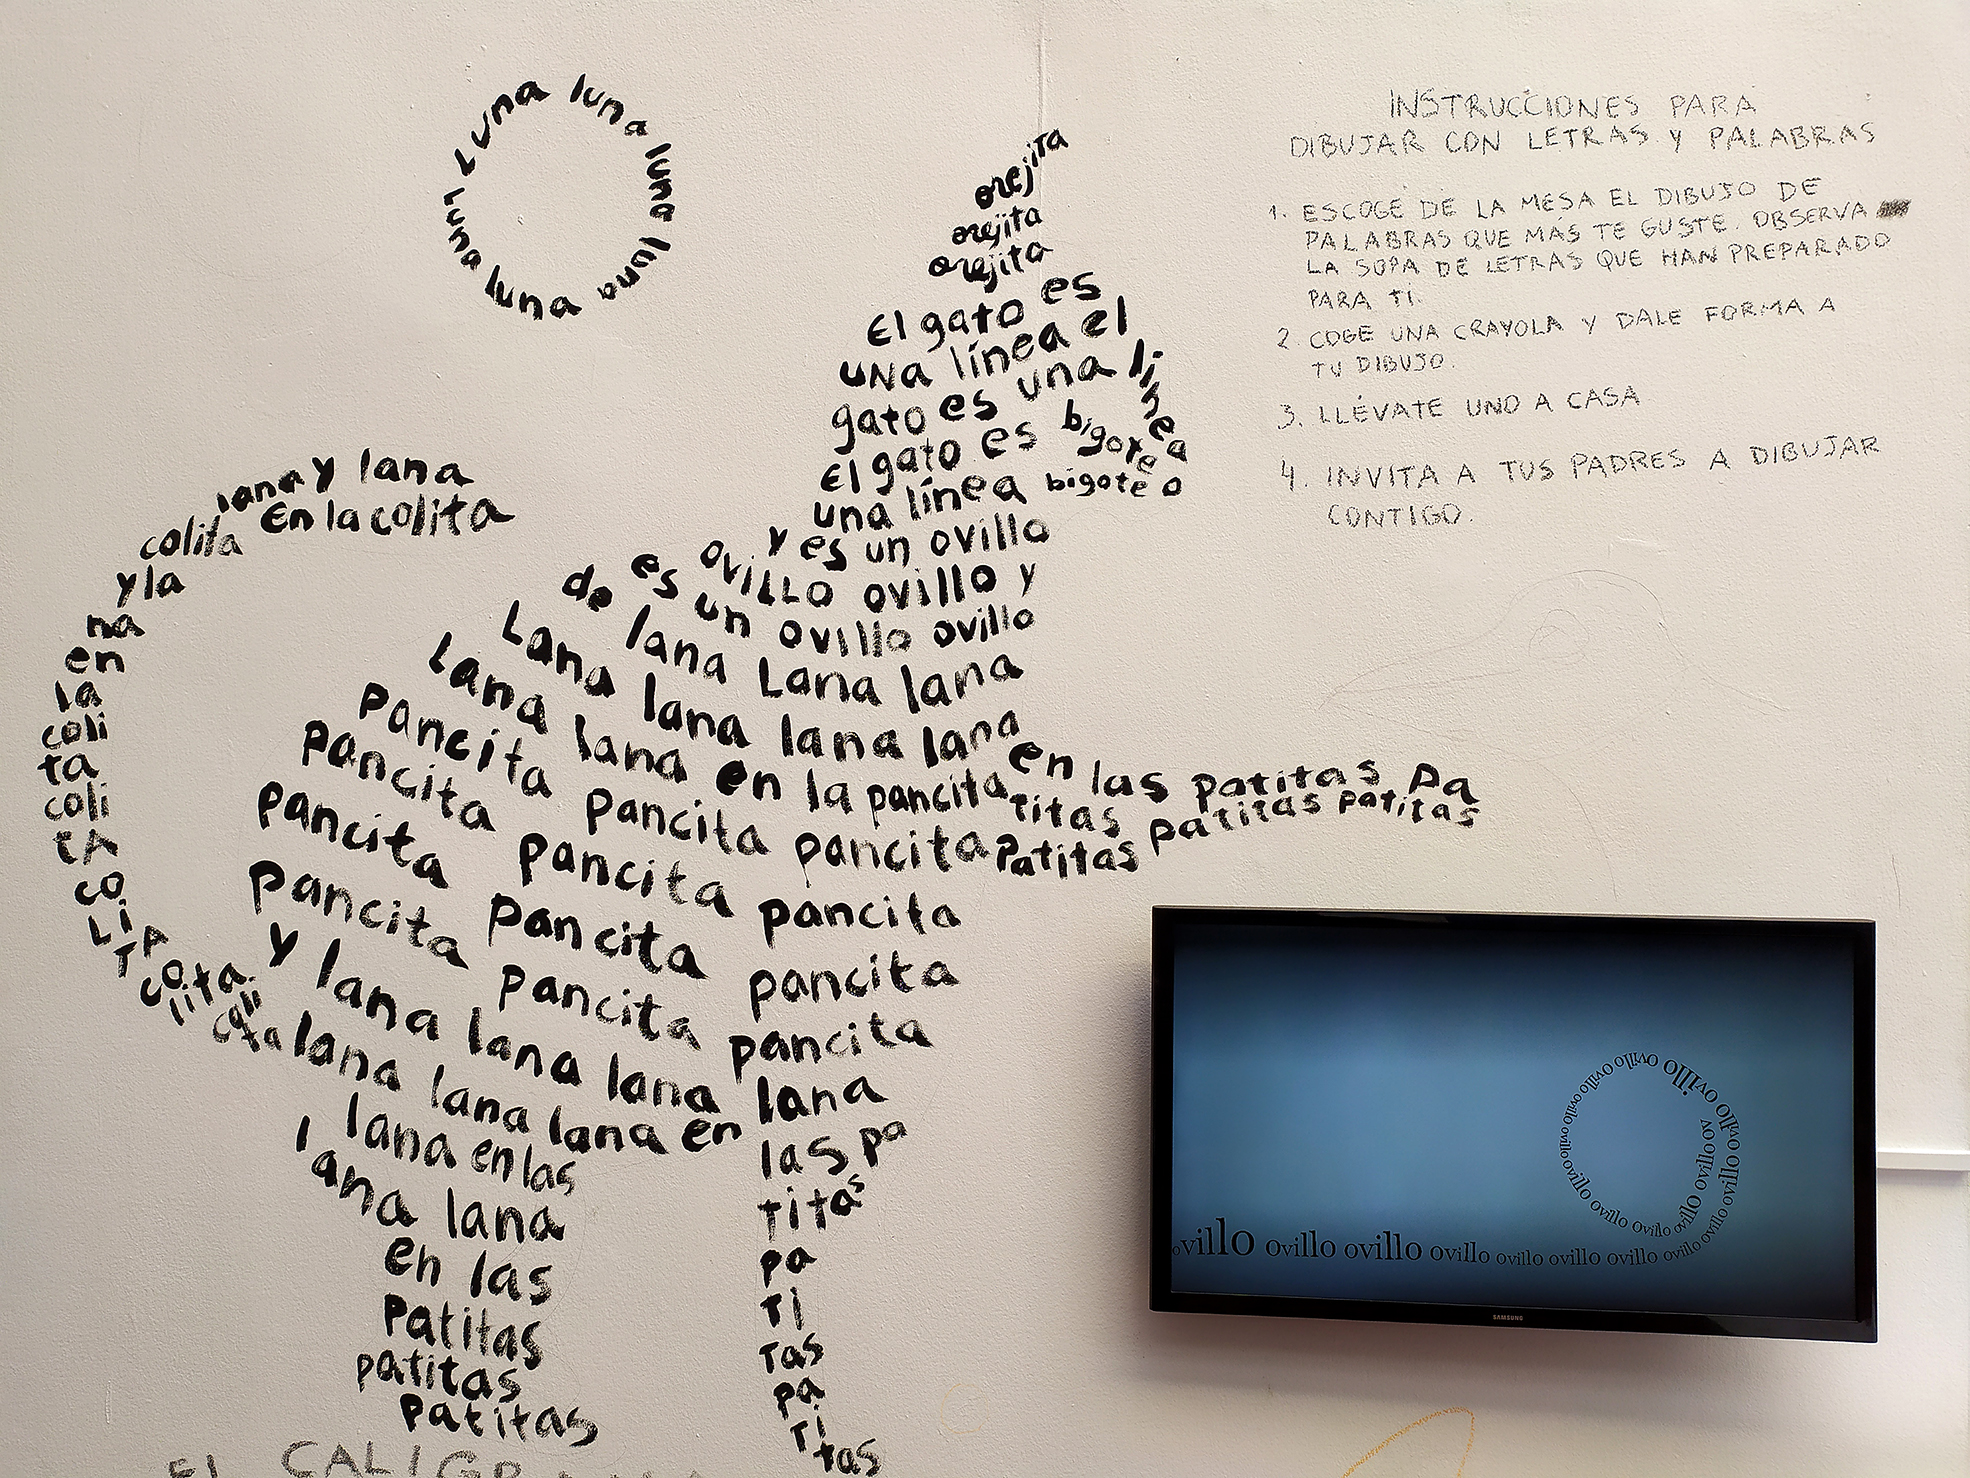 Luna luna luna luna luna luna
orejita
orejita
orejita
El gato es
una línea el
gato es una línea
El gato es bigote
una línea bigote o
y es un ovillo
ovillo ovillo y
es un ovillo ovillo
de lana Lana lana
Lana lana lana lana
Lana lana en la pancita
en las patitas pa
titas patitas patitas
Patitas
pancita pancita pancita
pancita pancita pancita
pancita pancita pancita
pancita pancita pancita
y lana lana lana lana
lana lana lana en las pa
titas
pa
Ti
Tas
pa
Ti
tas
lana en las
lana lana
en las
Patitas
patitas
patitas
lana y lana
En la colita
colita
y la
na
en
la
coli
ta
coli
tA
co
Li
TA
co
lita
coli
ta
INSTRUCCIONES PARA
DIBUJAR CON LETRAS Y PALABRAS
1. ESCOGE DE LA MESA EL DIBUJO DE
PALABRAS QUE MÁS TE GUSTE. OBSERVA
LA SOPA DE LETRAS QUE HAN PREPARADO
PARA TI.
2. COGE UNA CRAYOLA Y DALE FORMA A
TU DIBUJO.
3. LLÉVATE UNO A CASA
4. INVITA A TUS PADRES A DIBUJAR
CONTIGO.
ovillo ovillo ovillo ovillo ovillo ovillo ovillo ovillo ovillo ovillo ovillo ovillo ovillo ovillo ovillo ovillo ovillo ovillo ovillo ov
SAMSUNG